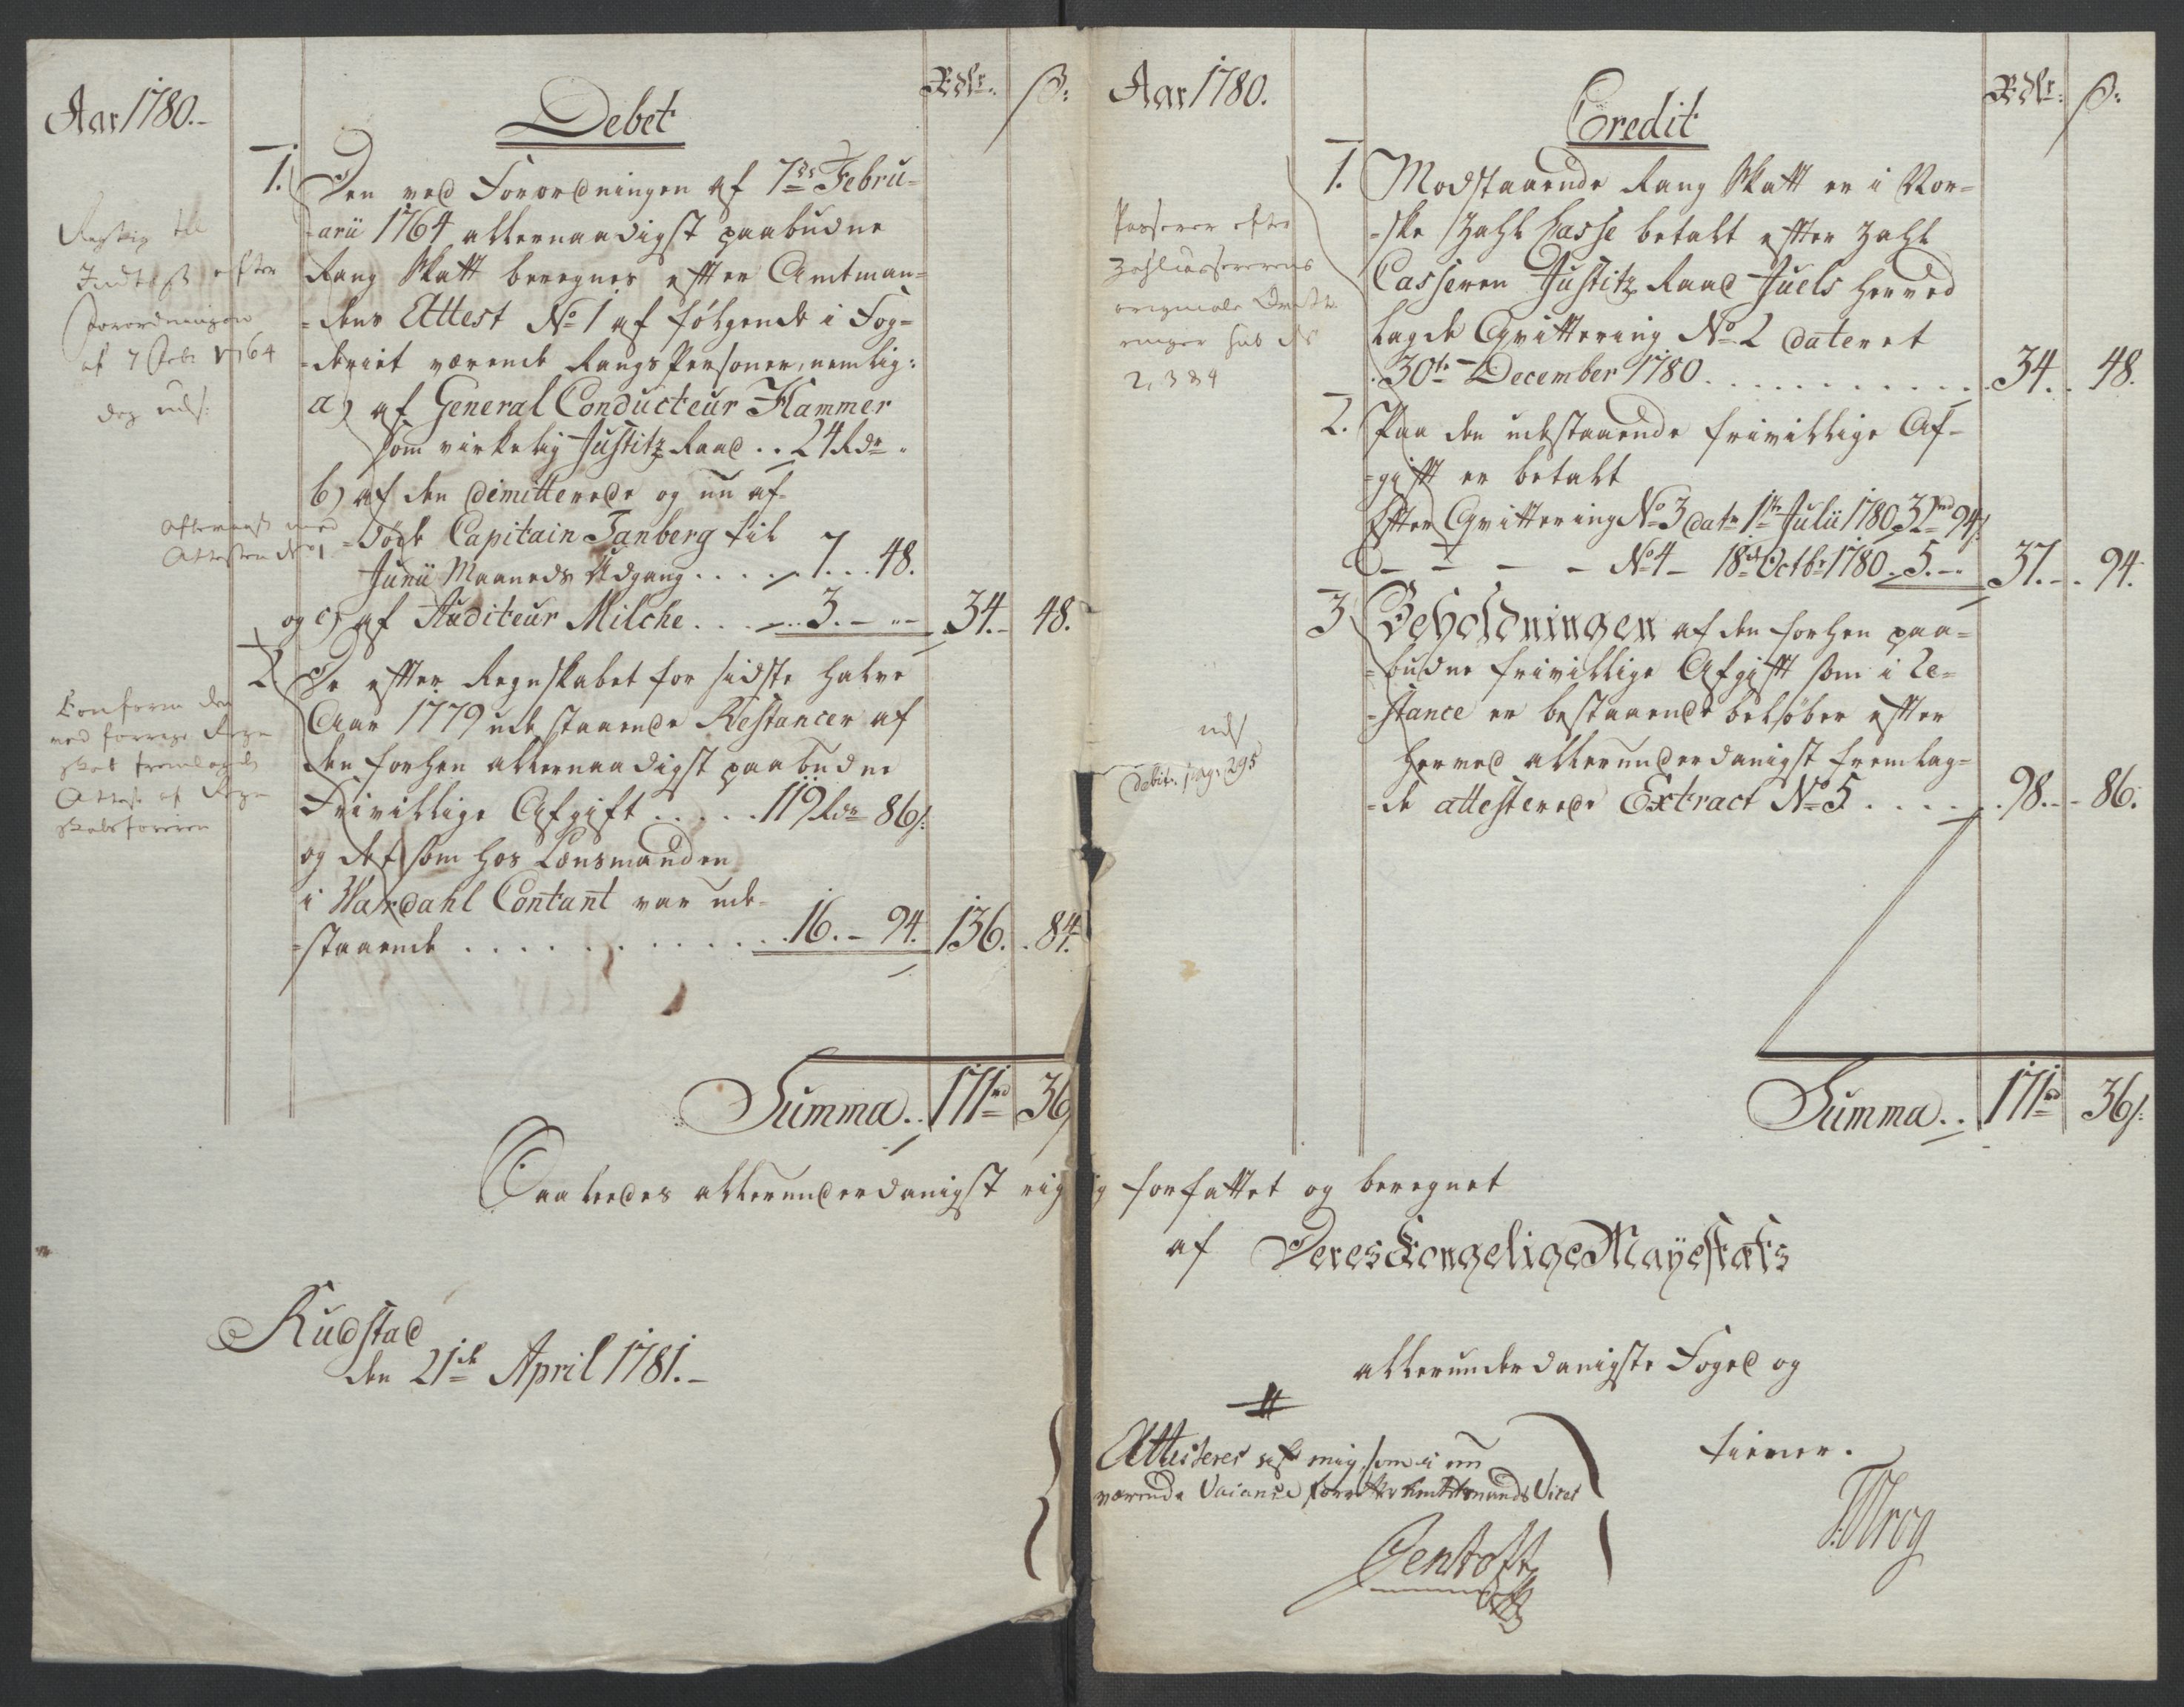 Aar 1780.-
Debet
Rdlr. ß:
1. Den ved Forordningen af 7de Febru-
-arii 1764 allernaadigst paabudne
Rang Skatt beregnes efter Amtman-
-dens Attest No 1 af følgende i Fog-
-deriet værende Rangs Personer, nemlig:
a) af General Conducteur Hammer
som virkelig Justitz Raad .. 24 Rdr „
b) af den dimitterede og nu af-
-døde Capitain Tanberg til
Junii Maaneds Udgang . . . . 7. . . 48.
og c) af Auditeur Milche . . . . . 3. - „ - 34. - 48.
2. De efter Regnskabet for sidste halve
Aar 1779 udestaaende Restancer af
den forhen allernaadigst paabudne
Frivillige Afgift . . . . . 119 Rdr 86ß:
og det som hos Lensmanden
i Wardahl Contant var ude-
-staaende . . . . . . . . . . . 16. - 94. 136. . 84.
Summa . . 171rd 36ß
Rigtig til
Indtægt efter
Forordningen
af 7 Febr 1764
dog uds:
Attesten No 1
Conform den
ved forrige Regn
skab fremlagde
Attest af Regn
skabsføreren
Aar 1780.
Credit
Rdlr: ß:
1. Modstaaende Rang Skatt er i Nor-
-ske Zahl Casse betalt efter Zahl
Casseren Justitz Raad Juels herved
lagde Qvittering No 2 dateret
30te December 1780 . . . . . . . . . . . 34. . 48.
2. Paa den udestaaende frivillige Af-
-gift er betalt
Efter Qvittering No 3 datr 1te Julii 1780 32rd 94ß
- - - - No 4 - 18de Octbr 1780. 5. - - 37. - . 94.
3 Beholdningen af den forhen paa-
-budne frivillige Afgift som i Re-
-stance er bestaaende beløber efter
herved allerunderdanigst fremlag-
-de attesterede Extract No 5 . . . . . 98. - - 86.
Summa . . 171rd 36ß.
Passerer efter
Zahlcasserens
originale Qvitte
ringer sub No
2, 3 & 4
uds
debit. pag: 295
Saaledes allerunderdanigst rigtig forfattet og beregnet
af Deres Kongelige Mayestæts
Rudstad
den 21de April 1781.-
allerunderdanigste Foged og
tiener.
Attesteres af mig, som i nu
værende Vacance forretter Amtmands Vices
Gentoft